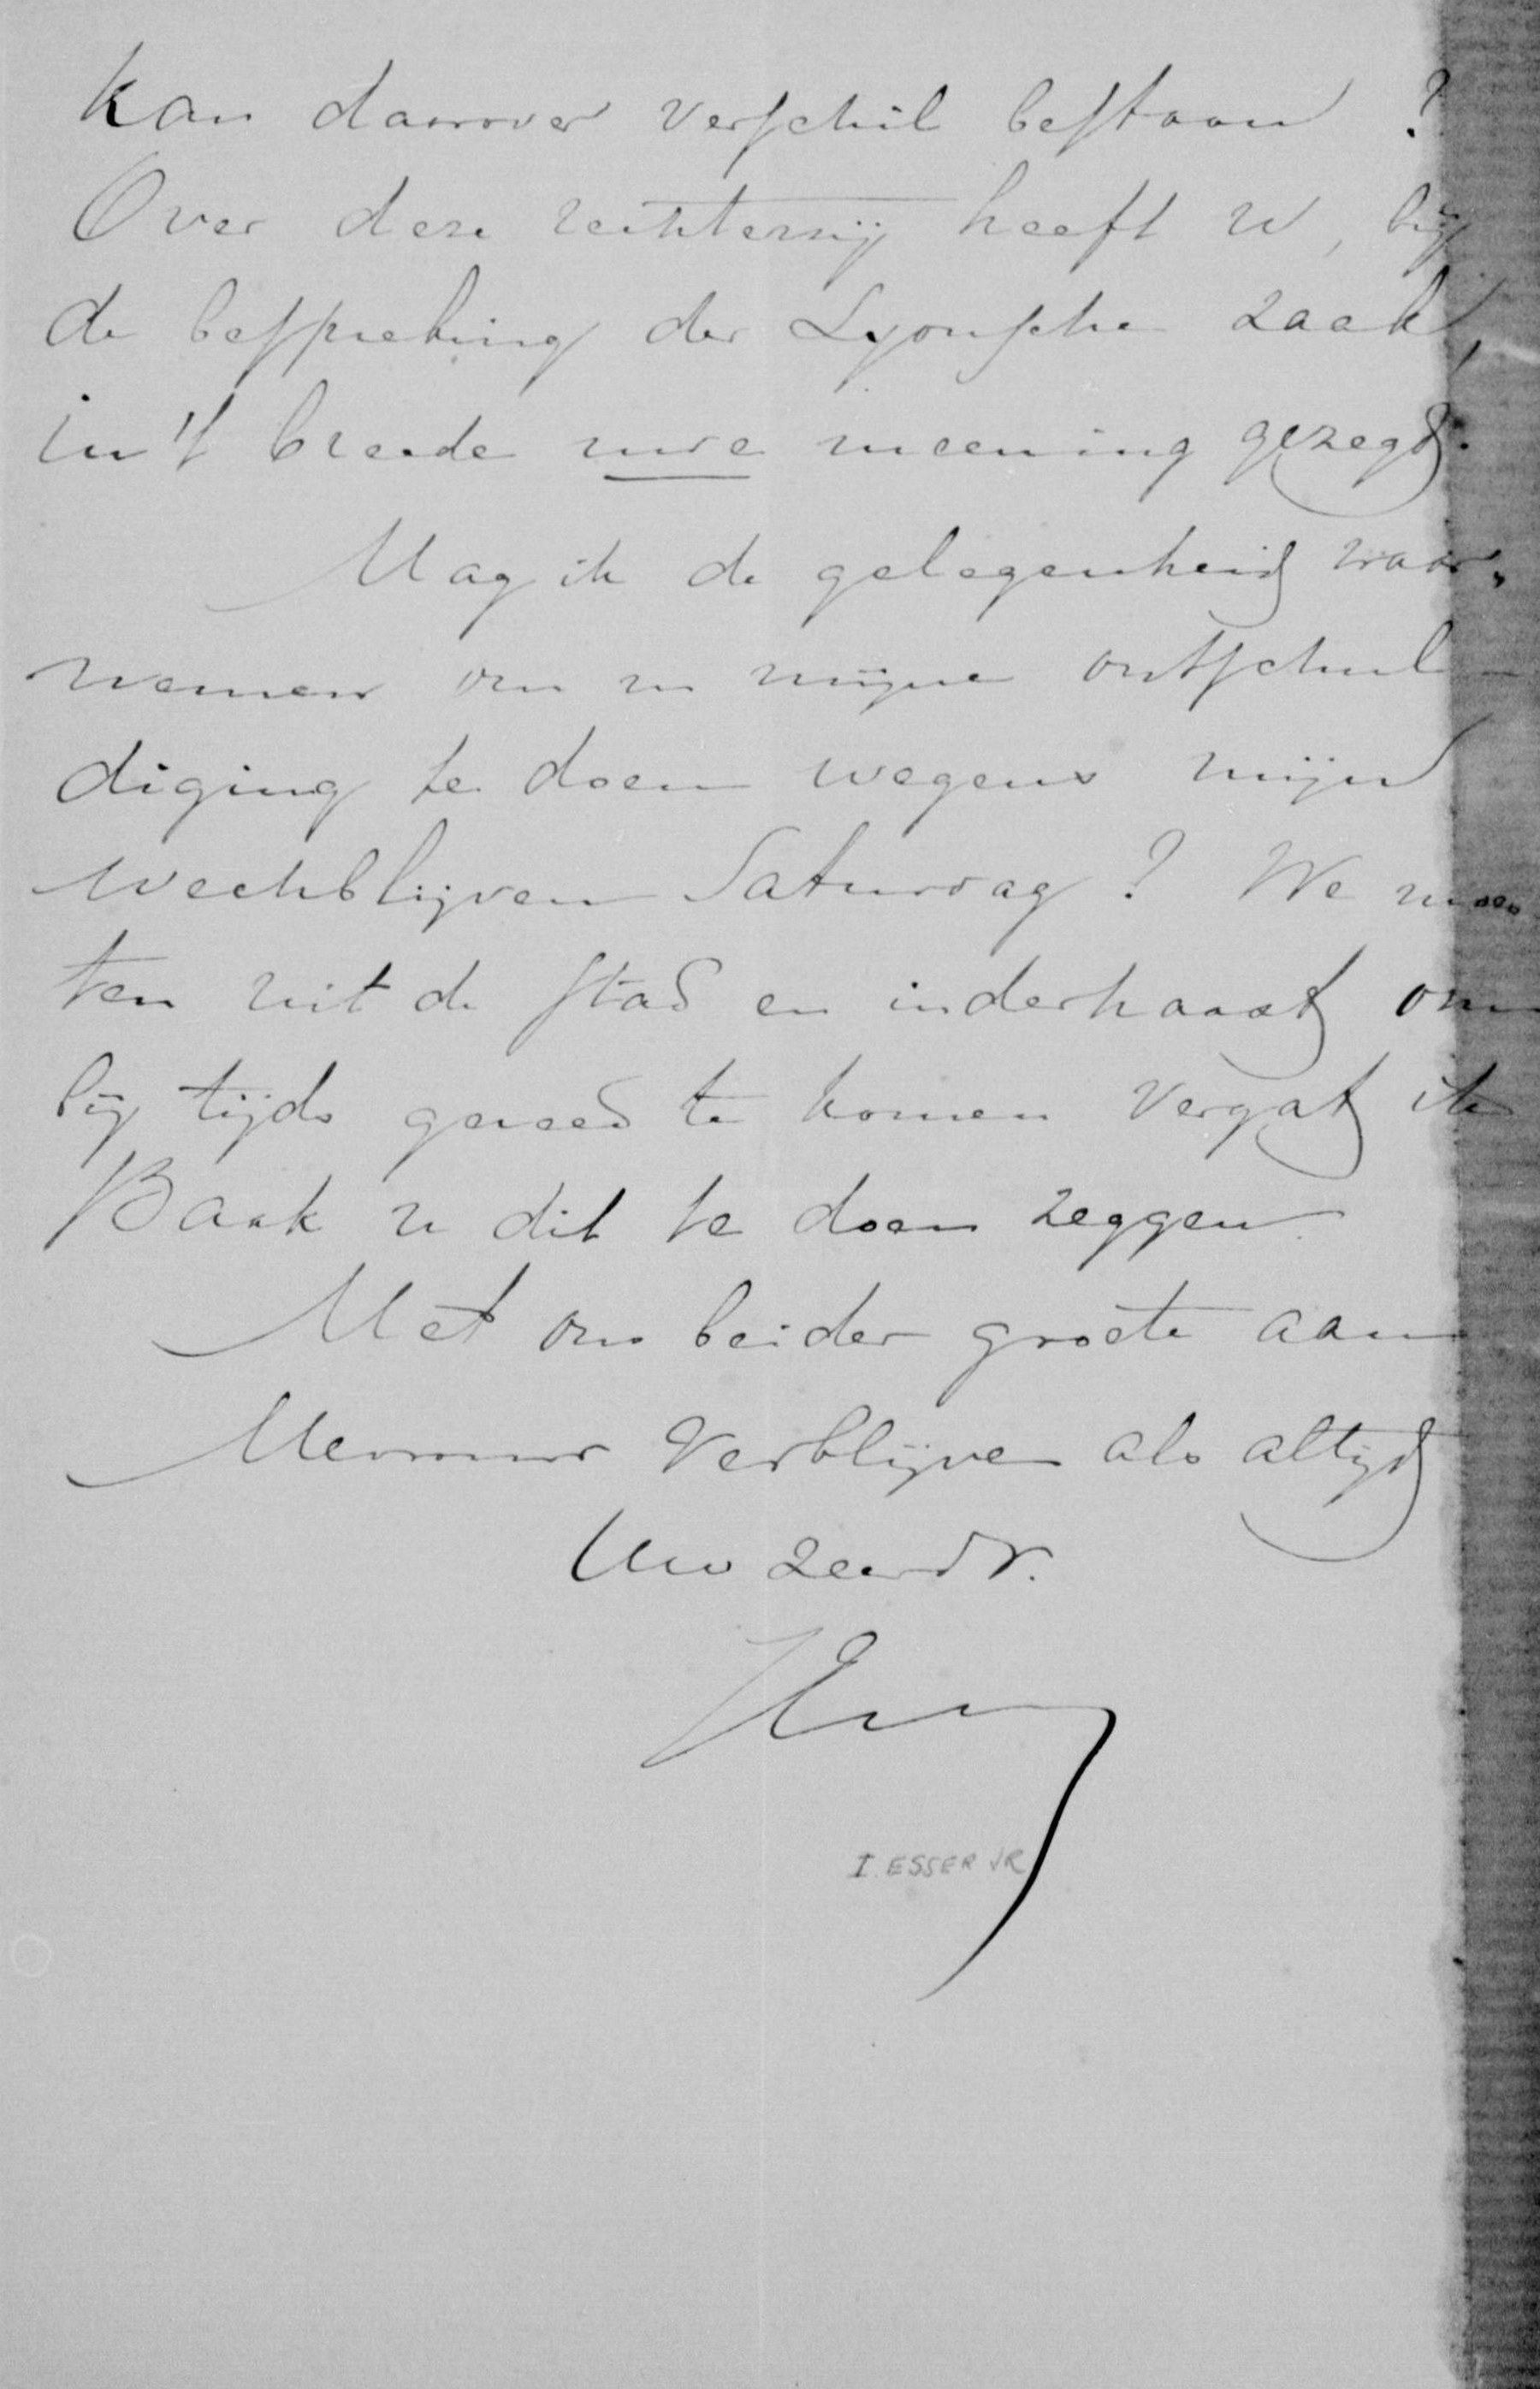 Kan daarover verschil bestaan ?
Over deze rechternij heeft U, bij
de bespreking der Lyonsche zaak,
in 't breede uwe meening gezegd.
Mag ik de gelegenheid waar-
nemen om u mijne ontschul-
diging te doen wegens mijn
wechblijven Saturdag ? We moes
ten uit de stad en inderhaast om
bij tijds gereed te komen vergat ik
Baak u dit te doen zeggen
Met ons beider groete aan
Mevrouw Verblijve als altijd
Uw
I. ESSER JR